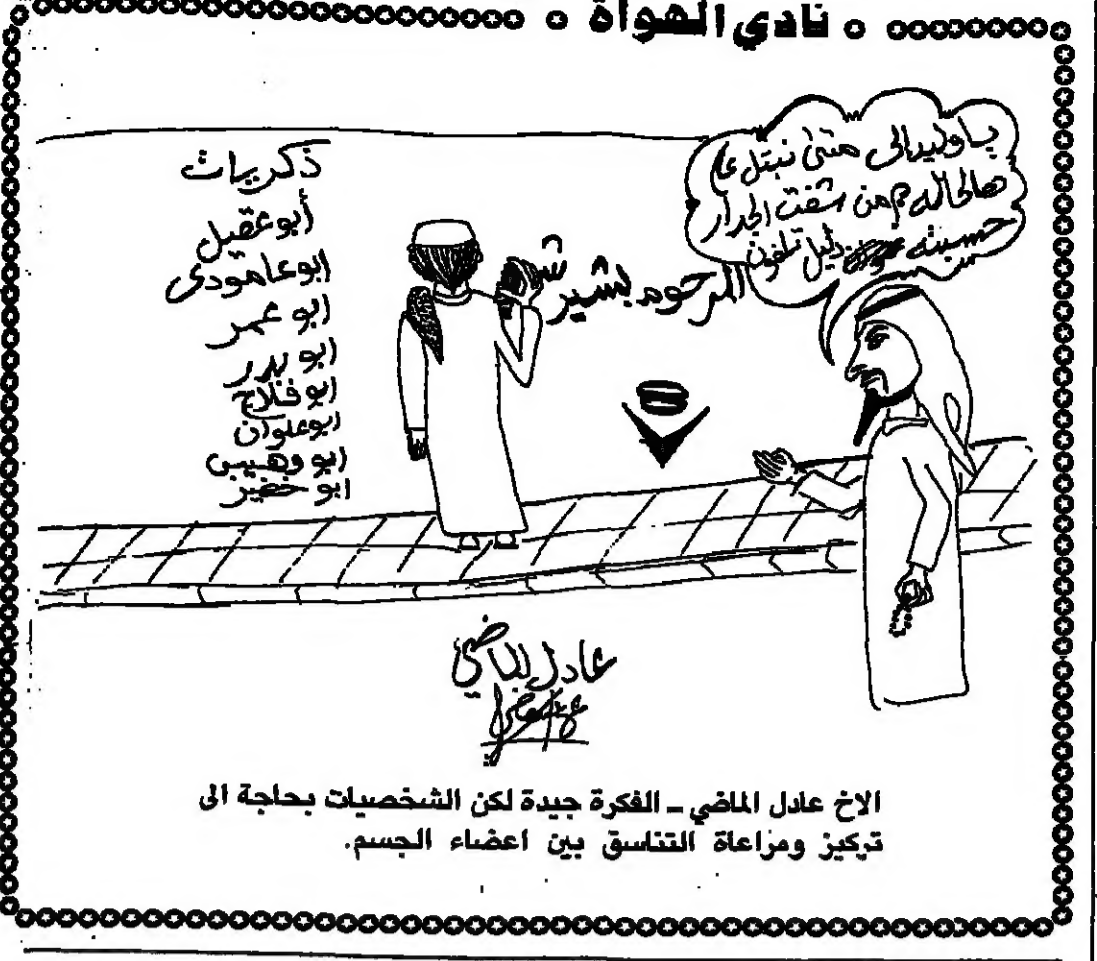 نادي الهواة
ياوليدالى متى نبتل عا
هالحاله م من شفت الجدار
حسبته دليل تلفون
المرحوم بشير ش
ذكريات
أبو عقيل
ابوعامودى
ابو عمر
ابو بدر
ابو فلاح
ابوعلوان
ابو وهيبي
ابو خضير
عادل الماضي
الاخ عادل الماضي ـ الفكرة جيدة لكن الشخصيات بحاجة الى
تركيز ومراعاة التناسق بين اعضاء الجسم.